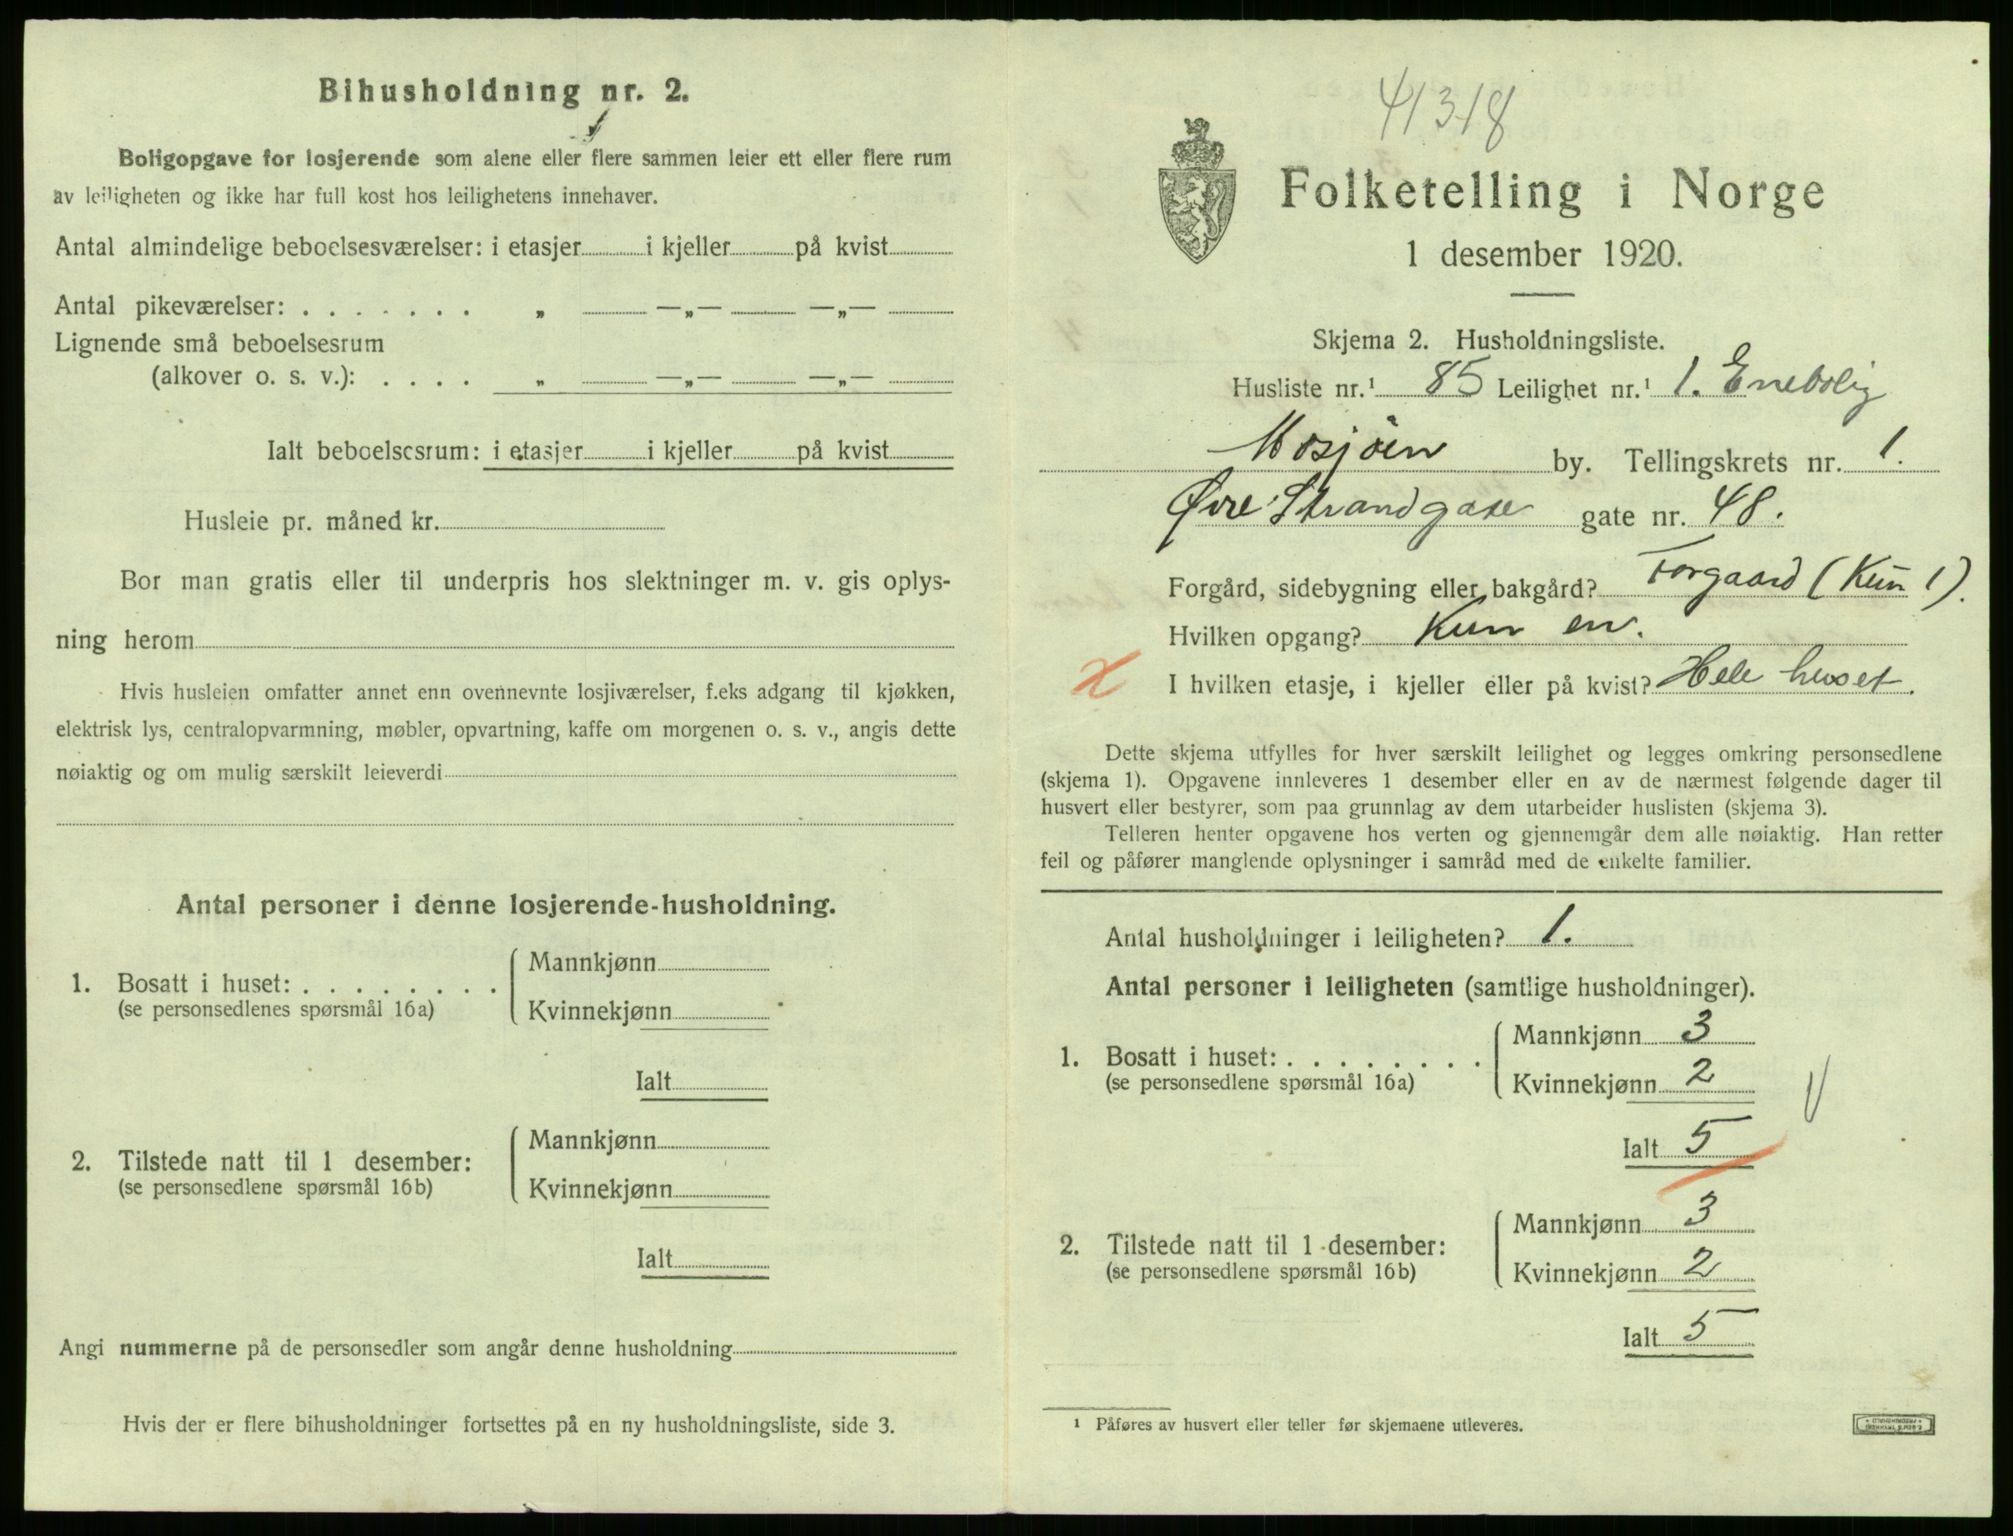 Bihusholdning nr. 2.
Boligopgave for losjerende som alene eller flere sammen leier ett eller flere rum
av leiligheten og ikke har full kost hos leilighetens innehaver.
Antal almindelige beboelsesværelser: i etasjer i kjeller på kvist
Antal pikeværelser: . . . . . . . „ —„— —„—
Lignende små beboelsesrum
(alkover o. s. v.): . . . . „ —„— —„—
Ialt beboelsesrum: i etasjer i kjeller på kvist
Husleie pr. måned kr.
Bor man gratis eller til underpris hos slektninger m. v. gis oplys-
ning herom
Hvis husleien omfatter annet enn ovennevnte losjiværelser, f.eks adgang til kjøkken,
elektrisk lys, centralopvarmning, møbler, opvartning, kaffe om morgenen o. s. v., angis dette
nøiaktig og om mulig særskilt leieverdi
Antal personer i denne losjerende-husholdning.
1. Bosatt i huset: . . . . . . . .
(se personsedlenes spørsmål 16a)
Mannkjønn
Kvinnekjønn
Ialt
2. Tilstede natt til 1 desember:
(se personsedlene spørsmål 16b)
Mannkjønn
Kvinnekjønn
Ialt
Angi nummerne på de personsedler som angår denne husholdning
Hvis der er flere bihusholdninger fortsettes på en ny husholdningsliste, side 3.
41318
Folketelling i Norge
1 desember 1920.
Skjema 2. Husholdningsliste.
Husliste nr.¹ 85 Leilighet nr.¹ 1. Enebolig
Mosjøen by. Tellingskrets nr. 1.
Øvre Strandgate gate nr. 48.
Forgård, sidebygning eller bakgård? Forgaard (Kun 1).
Hvilken opgang? Kun en.
I hvilken etasje, i kjeller eller på kvist? Hele huset.
Dette skjema utfylles for hver særskilt leilighet og legges omkring personsedlene
(skjema 1). Opgavene innleveres 1 desember eller en av de nærmest følgende dager til
husvert eller bestyrer, som paa grunnlag av dem utarbeider huslisten (skjema 3).
Telleren henter opgavene hos verten og gjennemgår dem alle nøiaktig. Han retter
feil og påfører manglende oplysninger i samråd med de enkelte familier.
Antal husholdninger i leiligheten? 1.
Antal personer i leiligheten (samtlige husholdninger).
1. Bosatt i huset: . . . . . . . .
(se personsedlene spørsmål 16a)
Mannkjønn 3
Kvinnekjønn 2
Ialt 5
2. Tilstede natt til 1 desember:
(se personsedlene spørsmål 16b)
Mannkjønn 3
Kvinnekjønn 2
Ialt 5
¹ Påføres av husvert eller teller før skjemaene utleveres.